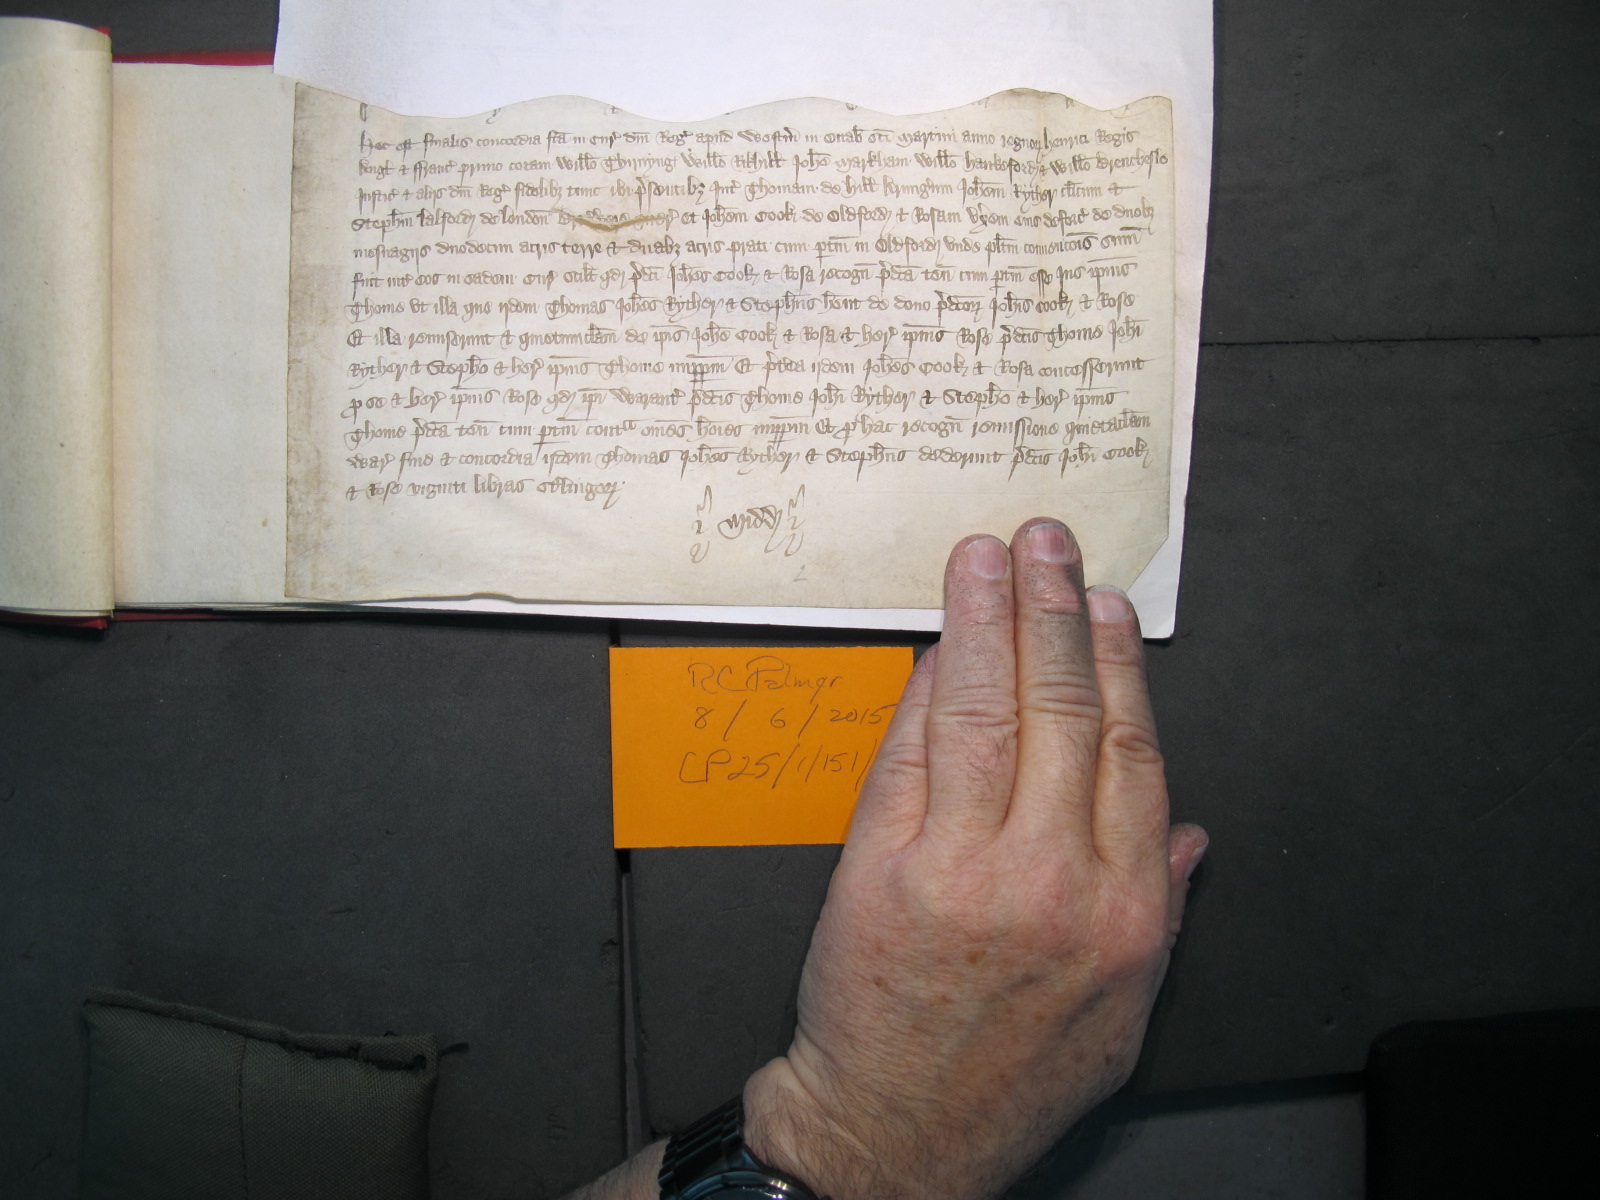 Hec est finalis concordia fc̄a in Cur̉ dn̄i Reg̉ apud Westm̉ in Octab̉ sc̄i Martini anno regnoꝝ Henrici Regis
Angl̉ & ffranc̉ primo coram Willo Thirnyng Willo Rikhill Johe Markham Willo Hankeford & Willo Brenchesle
Justic̉ & aliis dn̄i Reg̉ fidelibꝫ tunc ibi p̉sentibꝫ Int̉ Thomam de Hill Joh̄em Ryther cl̄icum &
Steph̄m de London quer̉ Et Joh̄em Cook de Oldford & Rosam vx̉em eius deforc̉ de duobꝫ
mesuagiis duodecim acris terre & duabꝫ acris prati cum ptin̄ in Oldford vnde pl̄itm conuenc̄ois sum̄
fuit int̉ eos in eadem Cur̉ scil̄t qd p̉dc̄i Joh̄es Cook & Rosa recogn̄ p̉dc̄a ten̄ cum ptin̄ esse Jus ip̄ius
Thome vt illa que iidem Thomas Joh̄es Ryther & Steph̄us h̄ent de dono p̉dc̄oꝝ Joh̄is Cook & Rose
Et illa remiserunt & quietumclam̄ de ip̄is Joh̄e Cook & Rosa & her̉ ip̄ius Rose p̉dc̄is Thome Joh̄i
Ryther & Steph̄o & her̉ ip̄ius Thome imppm̄ Et p̉terea iidem Joh̄es Cook & Rosa concesserunt
ꝓ se & her̉ ip̄ius Rose qd ip̄i warant̉ p̉dc̄is Thome Joh̄i Ryther & Steph̄o & her̉ ip̄ius
Thome p̉dc̄a ten̄ cum ptin̄ cont̉ om̄es hōies imppm̄ Et ꝓ hac recogn̄ remissione quietaclam̄
War̉ fine & concordia iidem Thomas Joh̄es Ryther & Steph̄us dederunt p̉dc̄is Joh̄i Cook
& Rose viginti libras st̉lingoꝝ
Midd
2
RC Palmer
8 / 6 / 2015
CP 25/1/151/